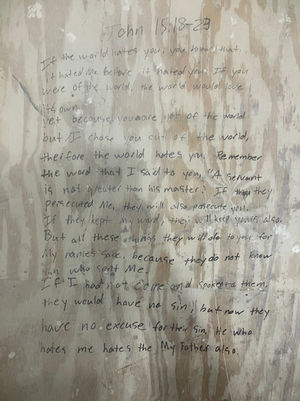 John 15:18-23
If the world hates you, you know that
it hated Me before it hated you. If you
were of the world, the world would love
its own.
Yet because you are not of the world
but I chose you out of the world,
therfore the world hates you. Remember
the word that I said to you, "A servant
is not greater than his master." If they
persecuted Me, they will also persecute you.
If they kept my word, they will keep yours also.
But all these things they will do to you for
My names sake, because they do not know
him who sent Me.
If I had not come and spoken to them,
they would have no sin, but now they
have no excuse for their sin, He who
hates me hates the My Father also.